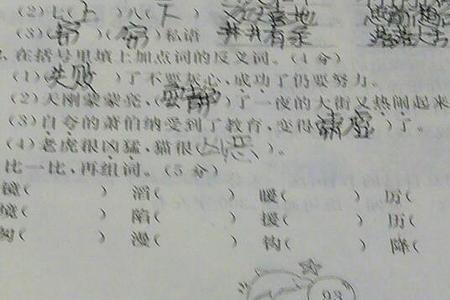 (2)七(上)八(下)
(3)(窃)(窃)私语 井井有条
在括号里填上加点词的反义词。(4分)
(1)(失败)了不要灰心,成功了仍要努力。
(2)天刚蒙蒙亮,()了一夜的大街又热闹起来
(3)自夸的萧伯纳受到了教育,变得(谦虚)了。
(4)老虎很凶猛,猫很()。
比一比,再组词。(5分)
镜( ) 滔( ) 暖( ) 厉( )
境( ) 陷( ) 援( ) 历( )
( ) 漫( ) 钩( ) 降( )
93